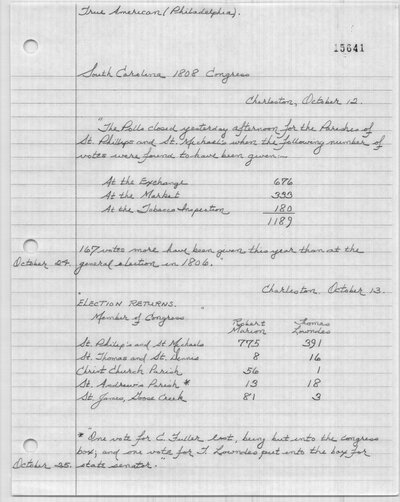 True American (Philadelphia).
15641
South Carolina 1808 Congress
Charleston, October 12.
"The Polls closed yesterday afternoon for the Parishes of
St. Phillips and St. Michael's when the following number of
votes were found to have been given—
At the Exchange 676
At the Market 333
At the Tobacco Inspection 180
1189
167 votes more have been given this year than at the
October 24. general election in 1806."
Charleston October 13.
ELECTION RETURNS.
Member of Congress
Robert Thomas
Marion Lowndes
St. Philip's and St Michaels 775 391
St. Thomas and St. Dennis 8 16
Christ Church Parish 56 1
St. Andrew's Parish * 13 18
St. James, Goose Creek 81 3
* "One vote for C. Fuller lost, being put into the congress
box; and one vote for T. Lowndes put into the box for
October 25. state senator."